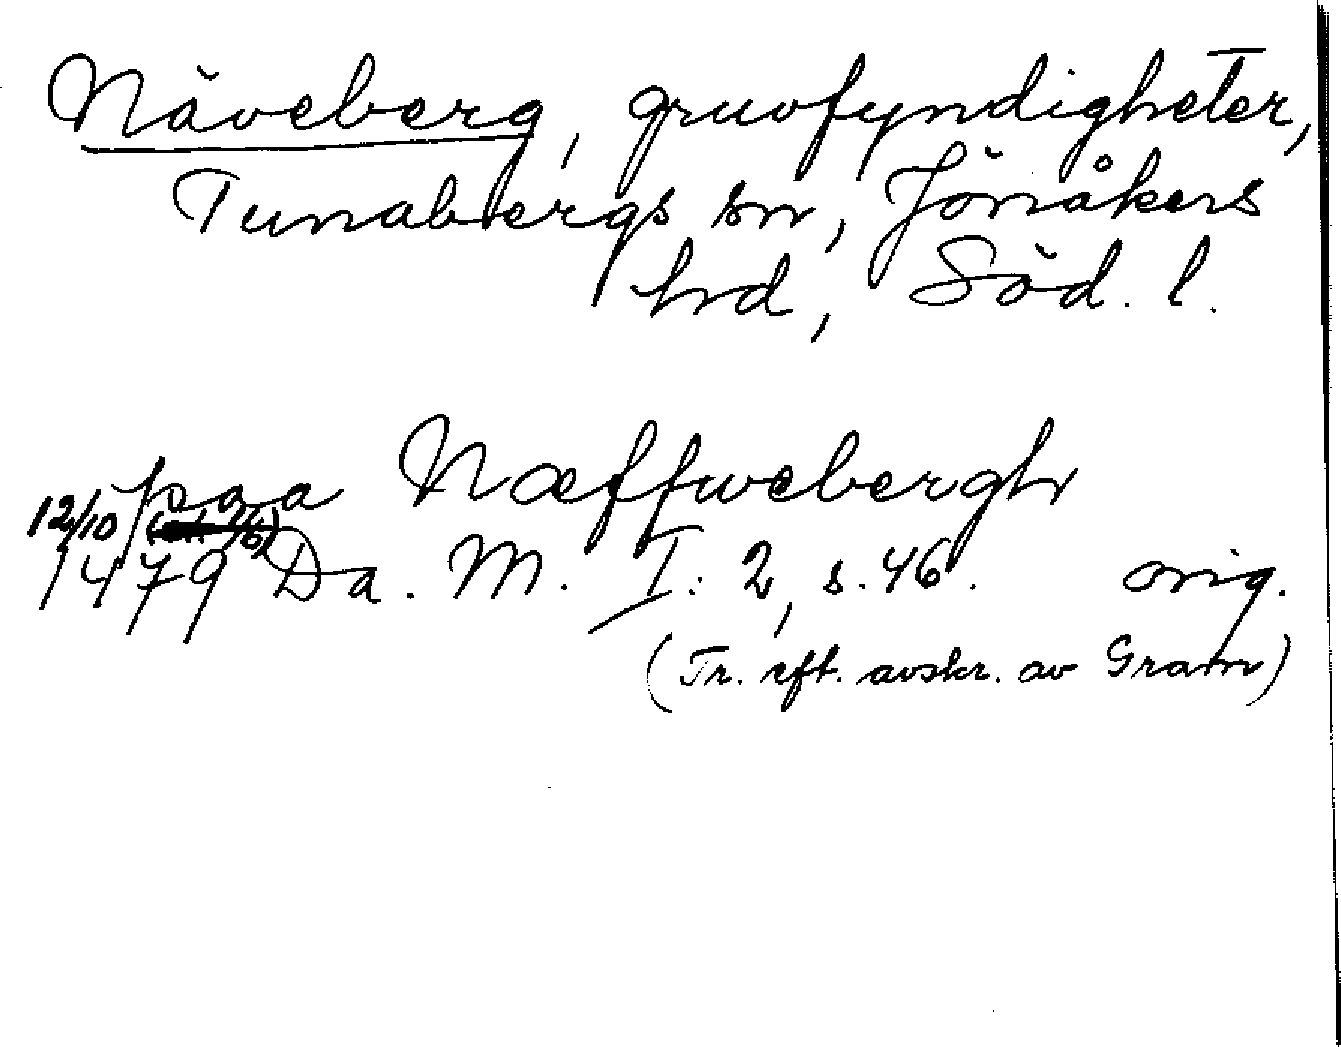 Näveberg, gruvfyndigheter,
Tunabergs sn, Jönåkers
hd, Söd. l.
paa Næffwebergh
12/10
1479 Da. M. I: 2, s. 46. orig.
(Tr. eft. avskr. av Gram)